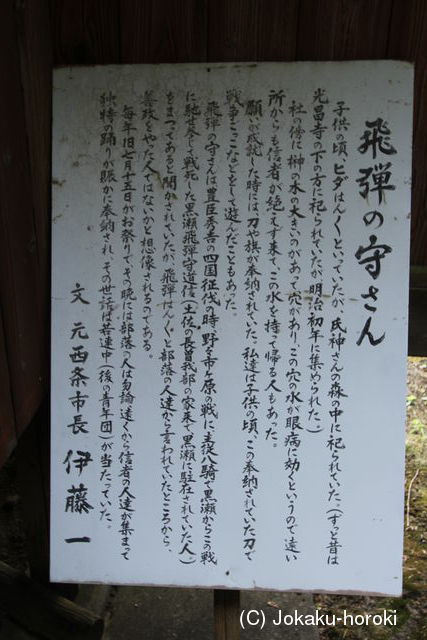 飛弾の守さん
子供の頃、ヒダはん〱といっていたが、氏神さんの森の中に祀られていた。(ずっと昔は
光昌寺の下の方に祀られていたが明治初年に集められた。)
社の傍に榊の木の大きいのがあって穴があり、この穴の水が眼病に効くというので遠い
所からも信者が絶えず来て、この水を持って帰る人もあった。
願いが成就した時には刀や旗が奉納されていた。私達は子供の頃、この奉納されていた刀で
戦争ごっこなどをして遊んだこともあった。
飛弾の守さんは豊臣秀吉の四国征伐の時、野々市ヶ原の戦に主従八騎で黒瀬からこの戦
に馳せ参じ戦死した黒瀬飛弾守道信(土佐の長曽我部の家来で黒瀬に駐在されていた人。)
をまつってあると聞かされていたが、飛弾はん〱と部落の人達から言われていたところから、
善政をやった人ではないかと想像されるのである。
毎年旧七月十五日がお祭りでその晩には部落の人は勿論遠くから信者の人達が集まって
独特の踊りが賑かに奉納され、その世話は若連中(後の青年団)が当たっていた。
文 元西条市長 伊藤 一
(C) Jokaku-horoki